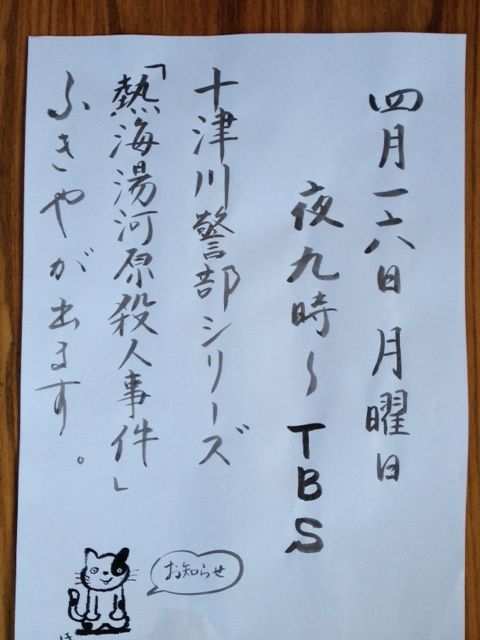 四月一六日 月曜日
夜九時〜TBS
十津川警部シリーズ
「熱海湯河原殺人事件」
ふきやが出ます。
お知らせ